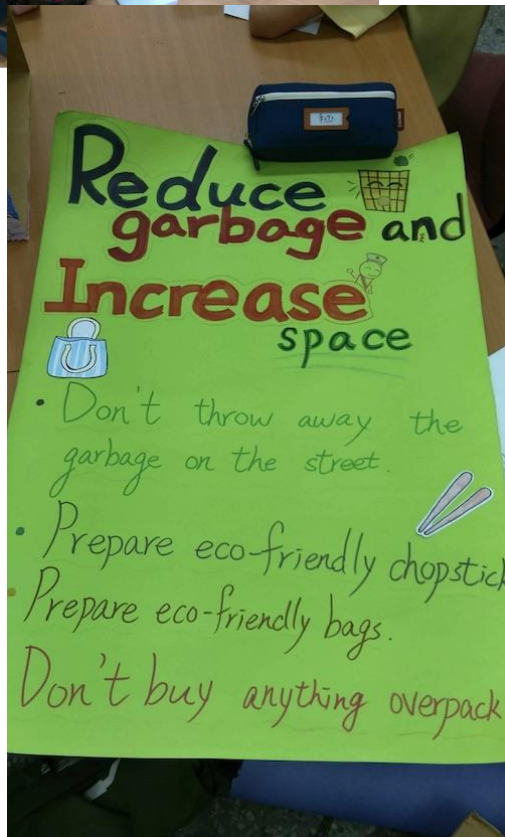 Reduce
garbage and
Increase
space
• Don't throw away the
garbage on the street.
• Prepare eco-friendly chopstick
• Prepare eco-friendly bags.
Don't buy anything overpack